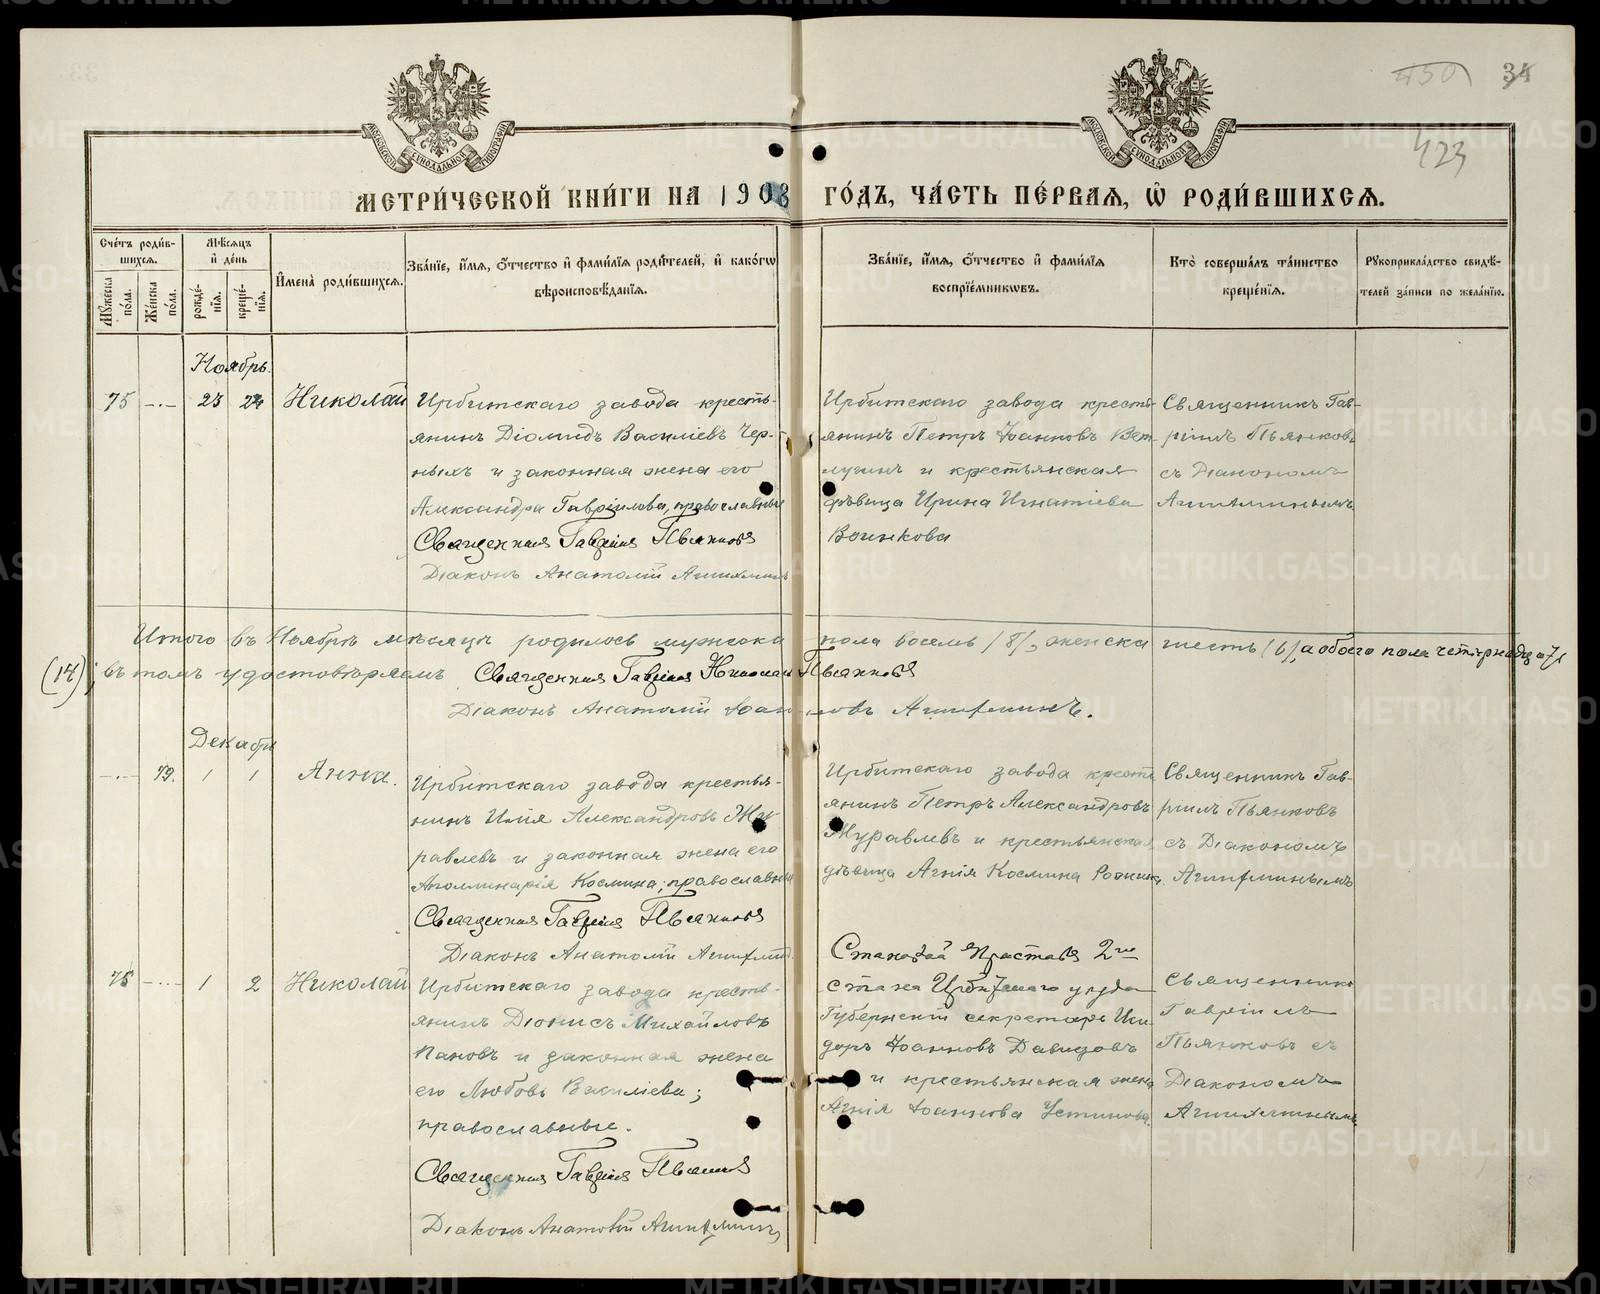 450 34
423
МОСКОВСКОЙ СѴНОДАЛЬНОЙ ТИПОГРАФІИ
МОСКОВСКОЙ СѴНОДАЛЬНОЙ ТИПОГРАФІИ
МЕТРИ́ЧЕСКОЙ КНИ́ГИ НА 1908 ГО́ДЪ, ЧА́СТЬ ПЕ́РВАѦ, Ѡ РОДИ́ВШИХСѦ.
Сче́тъ роди́вшихсѧ.
Мꙋ́жеска по́ла.
Же́нска по́ла.
Мѣ́сѧцъ и҆ де́нь
рожде́нїѧ.
креще́нїѧ.
И҆мена̀ роди́вшихсѧ.
Зва́нїе, и҆́мѧ, ѻ҆́тчество и҆ фами́лїѧ роди́телей, и҆ како́гѡ вѣроисповѣ́данїѧ.
Зва́нїе, и҆́мѧ, ѻ҆́тчество и҆ фами́лїѧ воспрїе́мникѡвъ.
Кто̀ соверша́лъ та́инство креще́нїѧ.
Рꙋкоприкла́дство свидѣ́телей за́писи по жела́нїю.
Ноябрь.
75 -.- 23 24 Николай
Ирбитскаго завода кресть-
янинъ Діомидъ Василіевъ Чер-
ныхъ и законная жена его
Александра Гавріилова, православные
Священникъ Гавріилъ Пьянковъ
Діаконъ Анатолій
Ирбитскаго завода кресть-
янинъ Петръ Іоанновъ Вет-
лугинъ и крестьянская
дѣвица Ирина Игнатіева
Воинкова
Священникъ Гав-
ріилъ Пьянковъ
съ Діакономъ
Итого въ Ноябрѣ мѣсяцѣ родилось мужска пола восемь /8/, женска шесть /6/, а обоего пола четырнадцать
(14); въ томъ удостовѣряемъ Священникъ Гавріилъ Николаевъ Пьянковъ
Діаконъ Анатолій Іоанновъ
Декабрь
-.- 79. 1 1 Анна.
Ирбитскаго завода крестья-
нинъ Илія Александровъ Жу-
равлевъ и законная жена его
Аполлинарія Космина; православные
Священникъ Гавріилъ Пьянковъ
Діаконъ Анатолій
Ирбитскаго завода кресть-
янинъ Петръ Александровъ
Журавлевъ и крестьянская
дѣвица Агнія Космина
Священникъ Гав-
ріилъ Пьянковъ
съ Діакономъ
75 -...- 1 2 Николай
Ирбитскаго завода кресть-
янинъ Діонисъ Михайловъ
Пановъ и законная жена
его Любовь Василіева;
православные.
Священникъ Гавріилъ Пьянковъ
Діаконъ Анатолій
Становой Приставъ 2го
стана Ирбитскаго уѣзда
Губернскій секретарь Иси-
доръ Іоанновъ Давыдовъ
и крестьянская жена
Агнія Іоаннова Устинова.
Священникъ
Гавріилъ
Пьянковъ съ
Діакономъ
METRIKI.GASO-URAL.RU